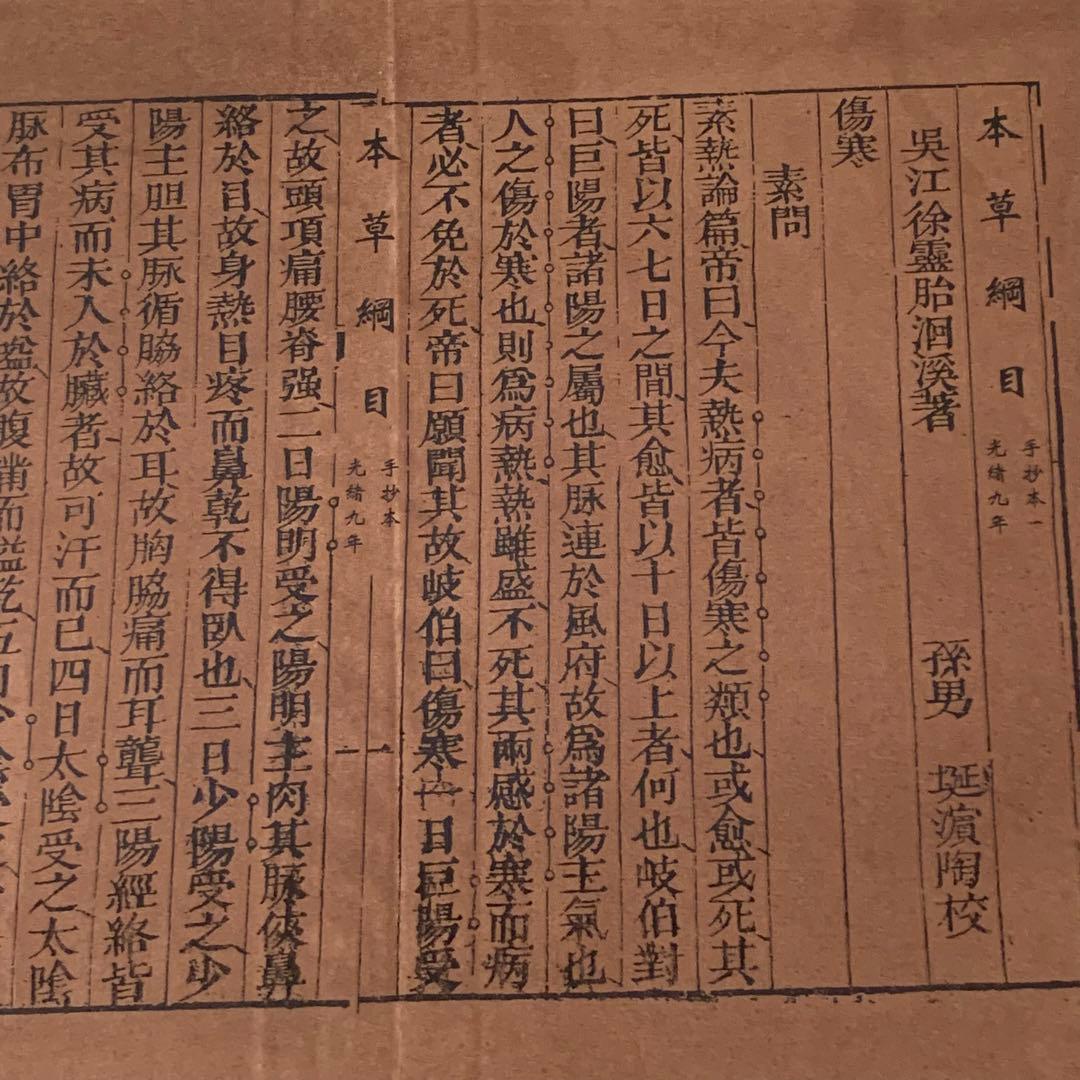 本草綱目
手抄本一
光緒九年
吳江徐靈胎洄溪著 孫男 埏濵陶校
傷寒
素問
素熱論篇帝曰今夫熱病者皆傷寒之類也或愈或死其
死皆以六七日之間其愈皆以十日以上者何也岐伯對
曰巨陽者諸陽之屬也其脉連於風府故爲諸陽主氣也
人之傷於寒也則爲病熱熱雖盛不死其兩感於寒而病
者必不免於死帝曰願聞其故岐伯曰傷寒一日巨陽受
本草綱目
手抄本
光緒九年
一
之故頭項痛腰脊强二日陽明受之陽明主肉其脈俠鼻
絡於目故身熱目疼而鼻乾不得臥也三日少陽受之少
陽主胆其脉循脇絡於耳故胸脇痛而耳聾三陽經絡皆
受其病而未入於臟者故可汗而已四日太陰受之太陰
脉布胃中絡於嗌故腹滿而嗌乾五